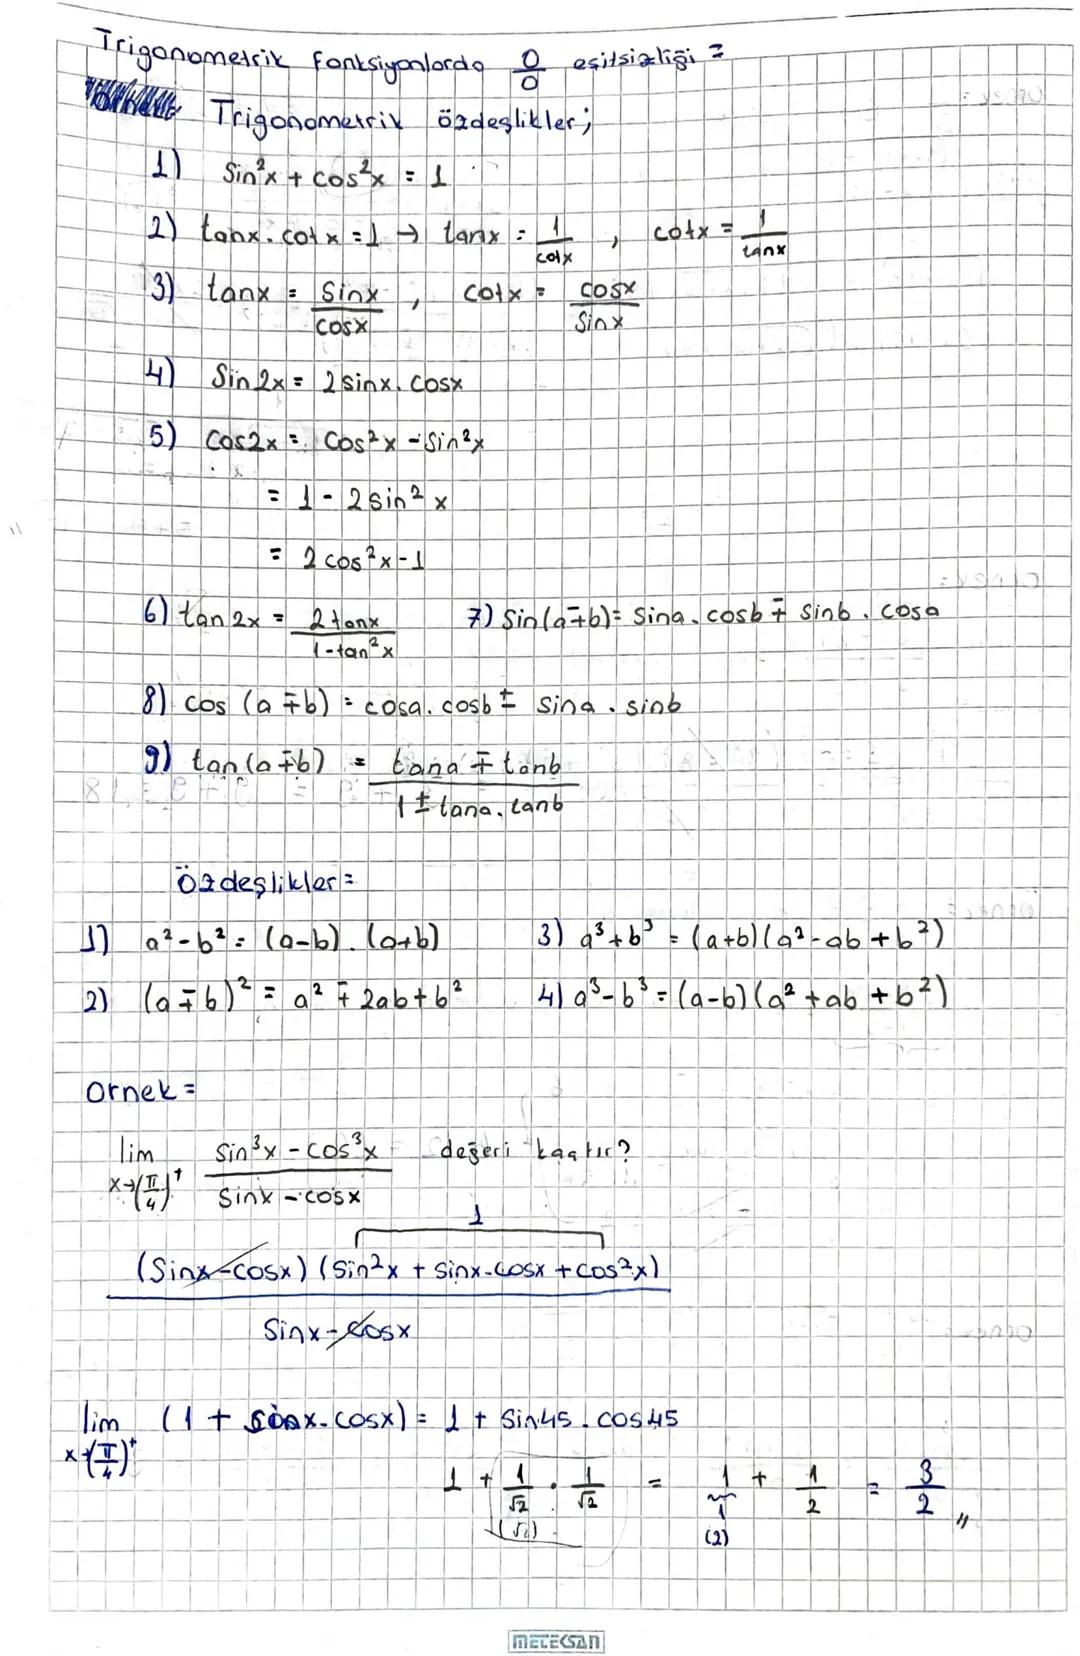 Trigonometrik fonksiyonlarda 0/0 eşitsizliği =
Trigonometrik özdeşlikler;
1) Sin²x + cos²x = 1
2) tanx . cotx = 1 → tanx = 1/cotx , cotx = 1/tanx
3) tanx = Sinx/cosx , cotx = cosx/Sinx
4) Sin2x = 2sinx . cosx
5) Cos2x = Cos²x - Sin²x
= 1 - 2sin²x
= 2cos²x - 1
6) tan2x = 2tanx/1-tan²x 7) Sin(a∓b) = Sina . cosb ∓ sinb . cosa
8) cos (a∓b) = cosa . cosb ± sina . sinb
9) tan(a∓b) = tana ∓ tanb/1 ± tana . tanb
Özdeşlikler =
1) a² - b² = (a-b) . (a+b) 3) a³ + b³ = (a+b)(a² - ab + b²)
2) (a∓b)² = a² ∓ 2ab + b² 4) a³ - b³ = (a-b)(a² + ab + b²)
Ornek =
lim x→(π/4)⁺ Sin³x - cos³x/Sinx - cosx değeri kaçtır?
1
(Sinx-cosx) (Sin²x + sinx.cosx + cos²x)
Sinx-cosx
lim x→(π/4)⁺ (1 + sinx.cosx) = 1 + Sin45 . cos45
1 + 1/√2 . 1/√2 = 1/1 + 1/2 = 3/2 ,,
(√2) (2)
METEKSAN